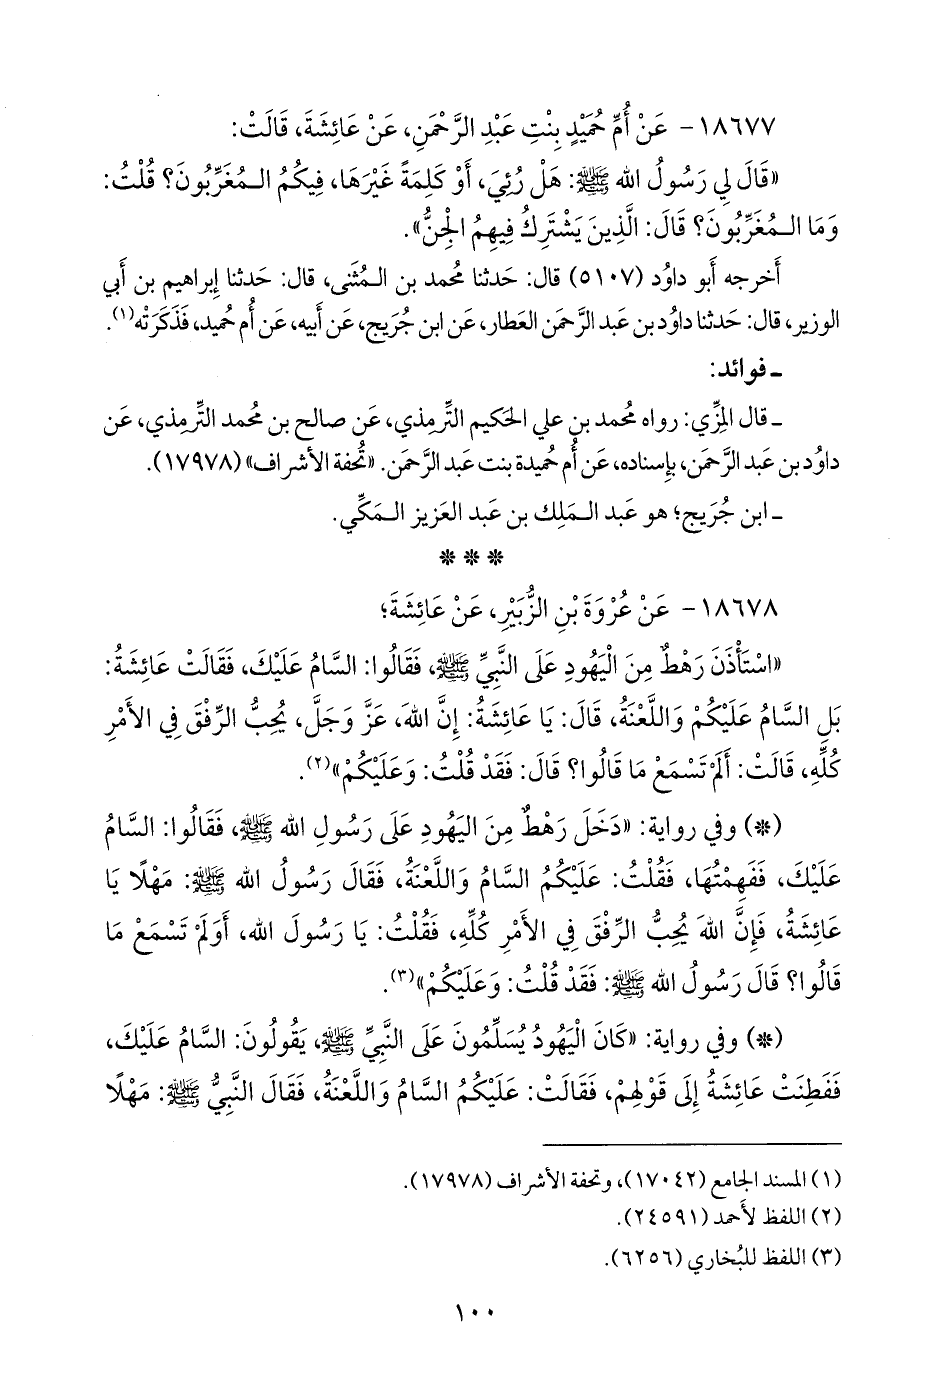 ١٨٦٧٧ - عَنْ أُمِّ حُمَيْدٍ بِنْتِ عَبْدِ الرَّحْمَنِ، عَنْ عَائِشَةَ، قَالَتْ:
«قَالَ لِي رَسُولُ الله ﷺ: هَلْ رُئِيَ، أَوْ كَلِمَةً غَيْرَهَا، فِيكُمُ الـمُغَرِّبُونَ؟ قُلْتُ:
وَمَا الـمُغَرِّبُونَ؟ قَالَ: الَّذِينَ يَشْتَرِكُ فِيهِمُ الْجِنُّ».
أَخرجه أَبو داوُد (٥١٠٧) قال: حَدثنا مُحمد بن الـمُثنى، قال: حَدثنا إِبراهيم بن أَبي
الوزير، قال: حَدثنا داوُد بن عَبد الرَّحمَن العَطار، عَن ابن جُرَيج، عَن أَبيه، عَن أُم حُميد، فَذَكَرَتْه(١).
ـ فوائد:
ـ قال المِزِّي: رواه مُحمد بن علي الحَكيم التِّرمِذي، عَن صالح بن مُحمد التِّرمِذي، عَن
داوُد بن عَبد الرَّحمَن، بإِسناده، عَن أُم حُميدة بنت عَبد الرَّحمَن. «تُحفة الأَشراف» (١٧٩٧٨).
ـ ابن جُرَيج؛ هو عَبد الـمَلِك بن عَبد العَزيز الـمَكِّي.
* * *
١٨٦٧٨ - عَنْ عُرْوَةَ بْنِ الزُّبَيْرِ، عَنْ عَائِشَةَ؛
«اسْتَأْذَنَ رَهْطٌ مِنَ الْيَهُودِ عَلَى النَّبِيِّ ﷺ، فَقَالُوا: السَّامُ عَلَيْكَ، فَقَالَتْ عَائِشَةُ:
بَلِ السَّامُ عَلَيْكُمْ وَاللَّعْنَةُ، قَالَ: يَا عَائِشَةُ: إِنَّ اللهَ، عَزَّ وَجَلَّ، يُحِبُّ الرِّفْقَ فِي الأَمْرِ
كُلِّهِ، قَالَتْ: أَلَمْ تَسْمَعْ مَا قَالُوا؟ قَالَ: فَقَدْ قُلْتُ: وَعَلَيْكُمْ»(٢).
(*) وفي رواية: «دَخَلَ رَهْطٌ مِنَ اليَهُودِ عَلَى رَسُولِ الله ﷺ، فَقَالُوا: السَّامُ
عَلَيْكَ، فَفَهِمْتُهَا، فَقُلْتُ: عَلَيْكُمُ السَّامُ وَاللَّعْنَةُ، فَقَالَ رَسُولُ الله ﷺ: مَهْلًا يَا
عَائِشَةُ، فَإِنَّ اللهَ يُحِبُّ الرِّفْقَ فِي الأَمْرِ كُلِّهِ، فَقُلْتُ: يَا رَسُولَ الله، أَوَلَمْ تَسْمَعْ مَا
قَالُوا؟ قَالَ رَسُولُ الله ﷺ: فَقَدْ قُلْتُ: وَعَلَيْكُمْ»(٣).
(*) وفي رواية: «كَانَ الْيَهُودُ يُسَلِّمُونَ عَلَى النَّبِيِّ ﷺ، يَقُولُونَ: السَّامُ عَلَيْكَ،
فَفَطِنَتْ عَائِشَةُ إِلَى قَوْلِهِمْ، فَقَالَتْ: عَلَيْكُمُ السَّامُ وَاللَّعْنَةُ، فَقَالَ النَّبِيُّ ﷺ: مَهْلًا
(١) المسند الجامع (١٧٠٤٢)، وتحفة الأشراف (١٧٩٧٨).
(٢) اللفظ لأَحمد (٢٤٥٩١).
(٣) اللفظ للبُخاري (٦٢٥٦).
١٠٠